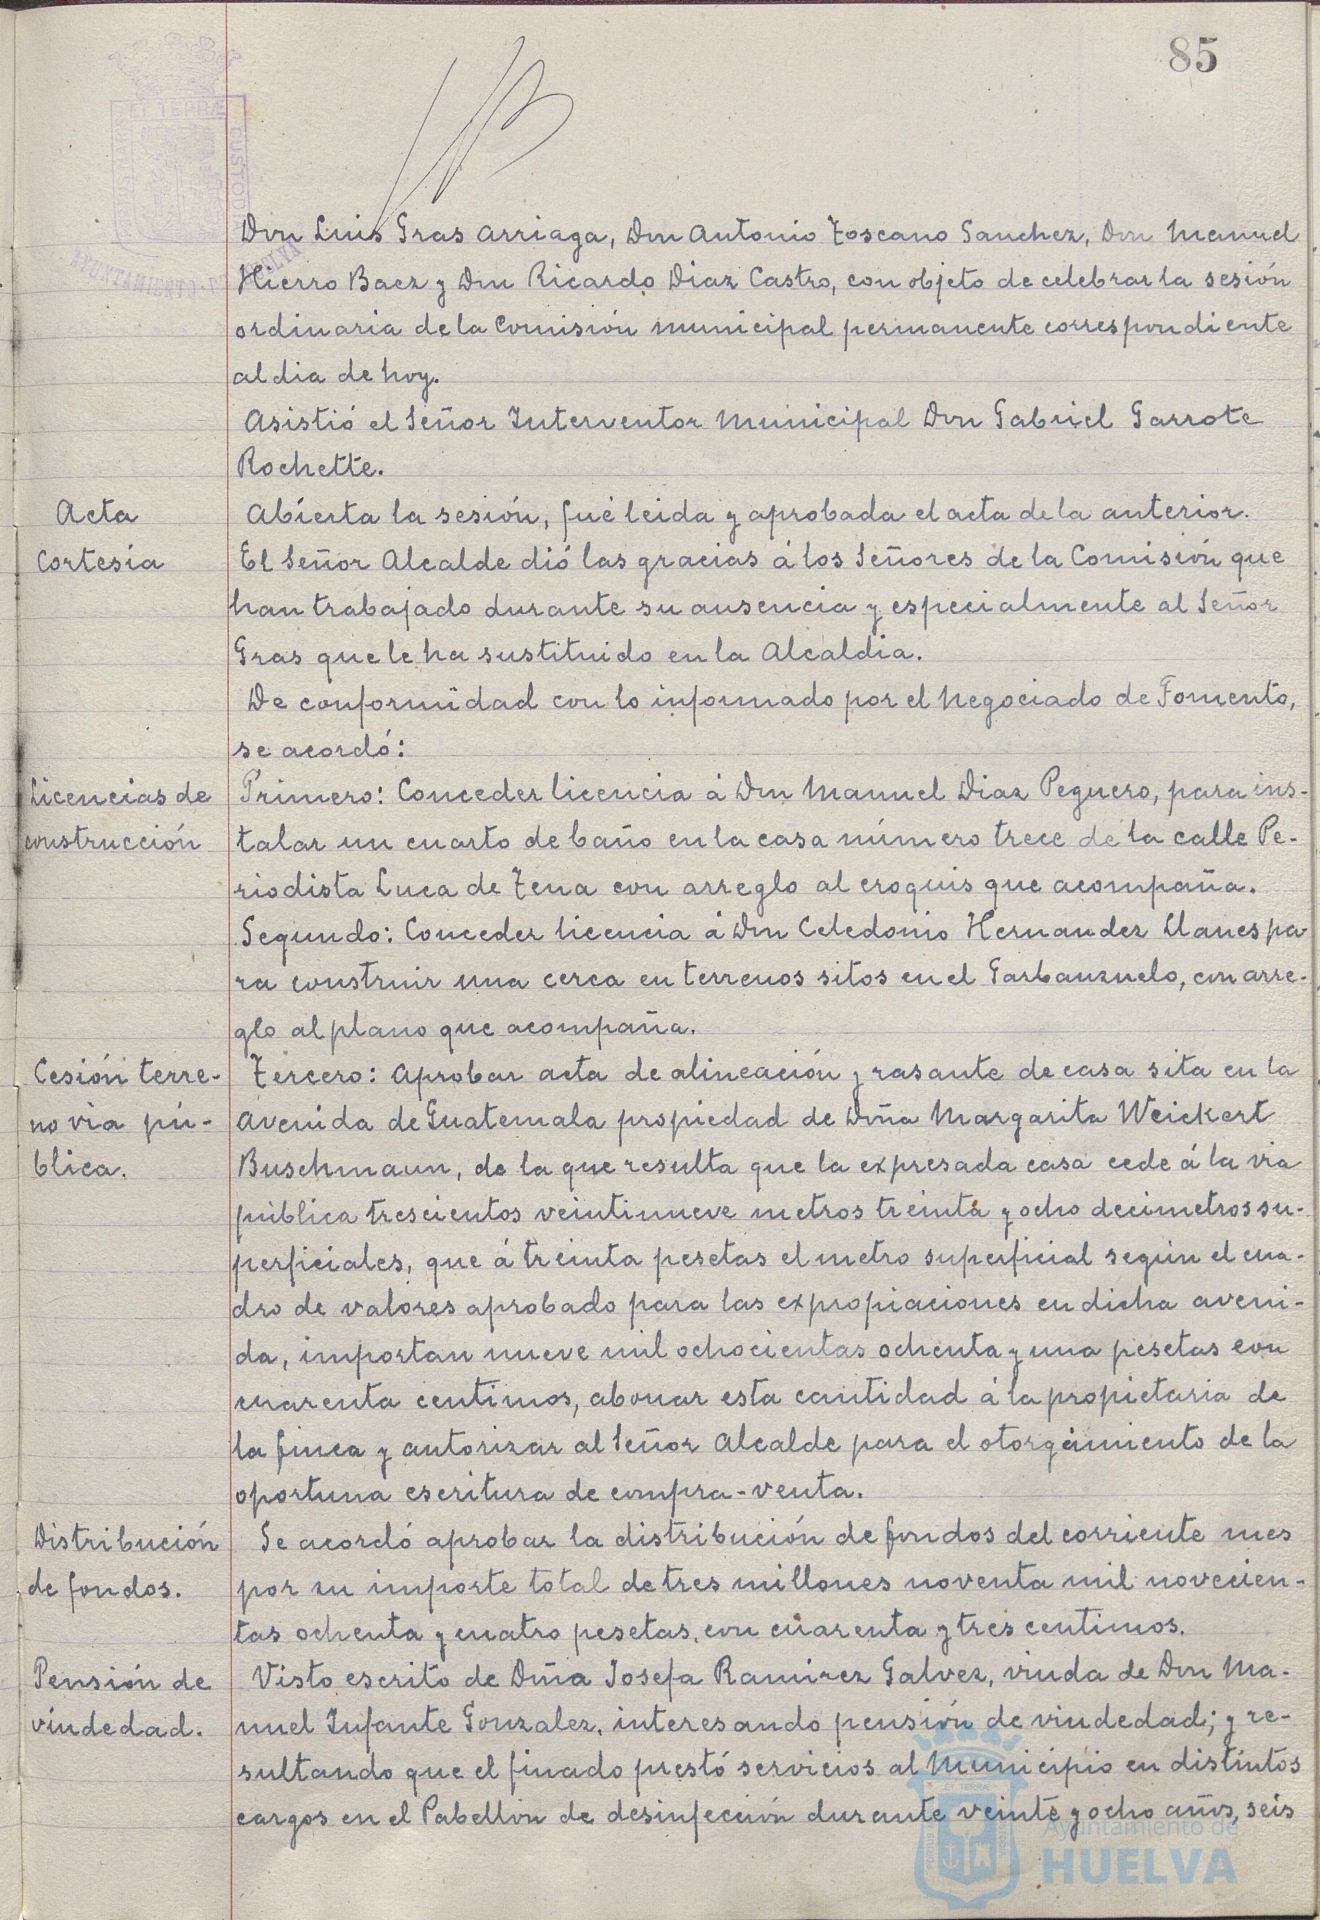 85
Don Luis Gras Arriaga, Don Antonio Toscano Sanchez, Don Manuel
Hierro Baez y Don Ricardo Diaz Castro, con objeto de celebrar la sesión
ordinaria de la Comisión municipal permanente correspondiente
al dia de hoy.
Asistió el Señor Interventor Municipal Don Gabriel Garrote
Rochette.
Acta
Abierta la sesión, fué leida y aprobada el acta de la anterior.
Cortesia
El Señor Alcalde dió las gracias á los Señores de la Comisión que
han trabajado durante su ausencia y especialmente al Señor
Gras que le ha sustituido en la Alcaldia.
De conformidad con lo informado por el Negociado de Fomento,
se acordó:
Licencias de
construcción
Primero: Conceder licencia á Don Manuel Diaz Peguero, para ins-
talar un cuarto de baño en la casa número trece de la calle Pe-
riodista Luca de Tena con arreglo al croquis que acompaña.
Segundo: Conceder licencia á Don Celedonio Hernandez Llanes pa
ra construir una cerca en terrenos sitos en el Garbanzuelo, con arre-
glo al plano que acompaña.
Cesión terre-
no via pú-
blica.
Tercero: Aprobar acta de alineación y rasante de casa sita en la
Avenida de Guatemala propiedad de Dña Margarita Weickert
Buschmann, de la que resulta que la expresada casa cede á la via
pública trescientos veintinueve metros treinta y ocho decimetros su-
perficiales, que á treinta pesetas el metro superficial según el cua-
dro de valores aprobado para las expropiaciones en dicha aveni-
da, importan nueve mil ochocientas ochenta y una pesetas con
cuarenta centimos, abonar esta cantidad á la propietaria de
la finca y autorizar al Señor Alcalde para el otorgamiento de la
oportuna escritura de compra-venta.
Distribución
de fondos.
Se acordó aprobar la distribución de fondos del corriente mes
por su importe total de tres millones noventa mil novecien-
tas ochenta y cuatro pesetas, con cuarenta y tres centimos.
Pensión de
viudedad.
Visto escrito de Dña Josefa Ramirez Galvez, viuda de Don Ma-
nuel Infante Gonzalez, interesando pensión de viudedad; y re-
sultando que el finado prestó servicios al Municipio en distintos
cargos en el Pabellon de desinfección durante veinte y ocho años, seis
Ayuntamiento de
HUELVA